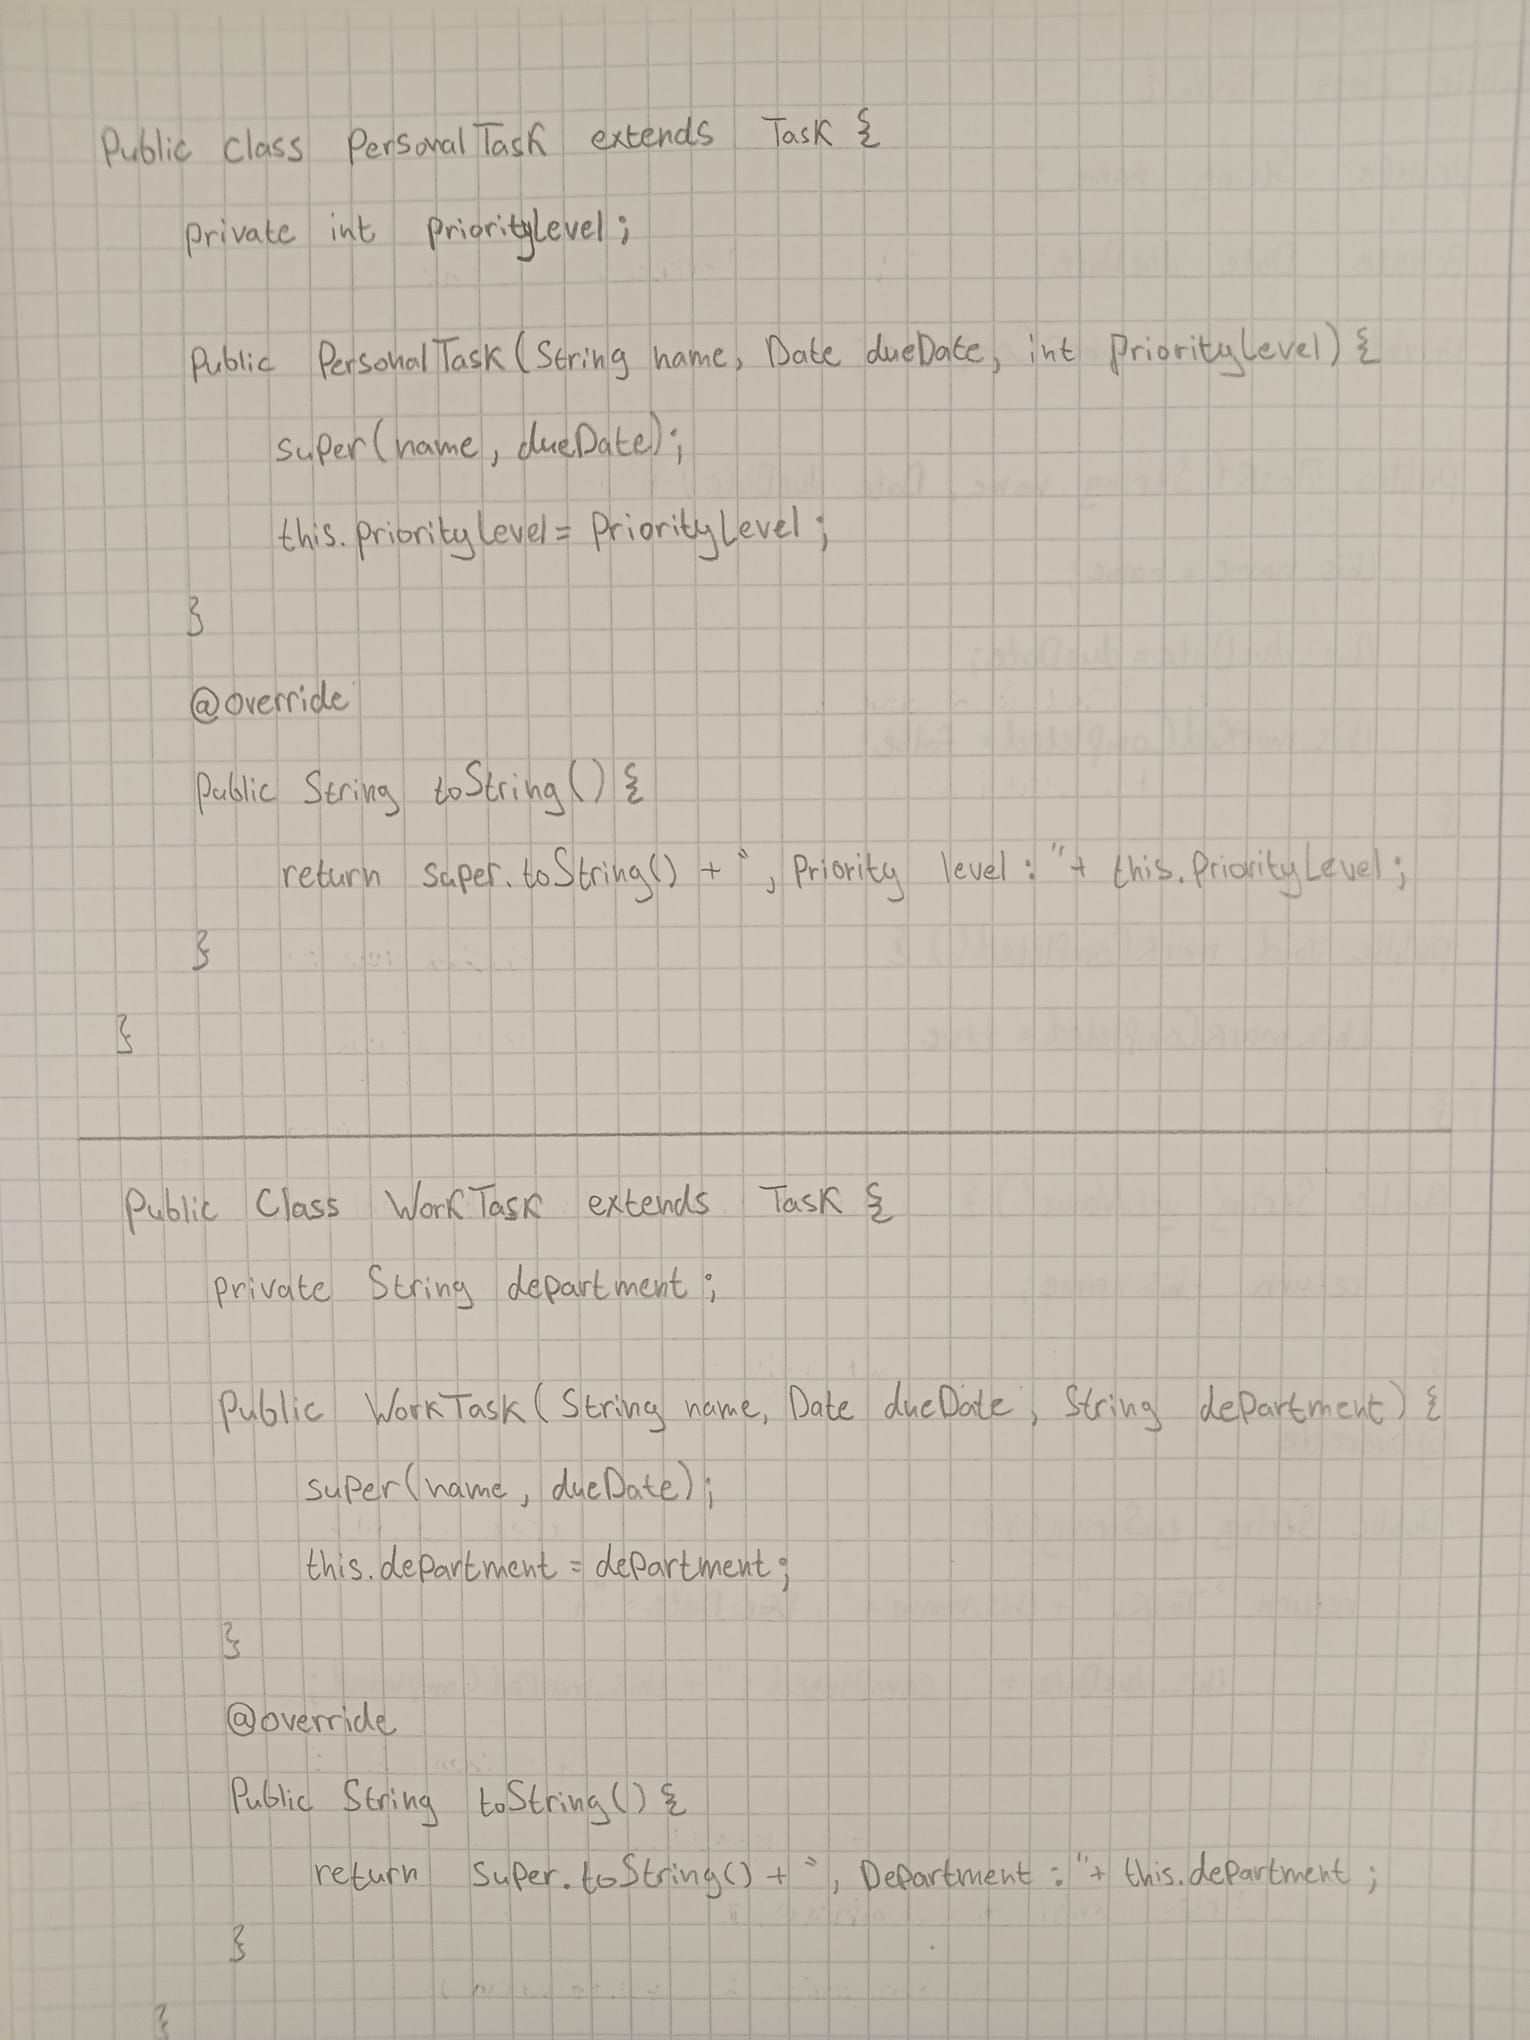 Public class PersonalTask extends Task {
private int priorityLevel;
Public PersonalTask(String name, Date dueDate, int PriorityLevel) {
super(name, dueDate);
this.priorityLevel = PriorityLevel;
}
@override
Public String toString() {
return super.toString() + ", Priority level: " + this.PriorityLevel;
}
}
Public Class WorkTask extends Task {
private String department;
Public WorkTask(String name, Date dueDate, String department) {
super(name, dueDate);
this.department = department;
}
@override
Public String toString() {
return super.toString() + ", Department: " + this.department;
}
}